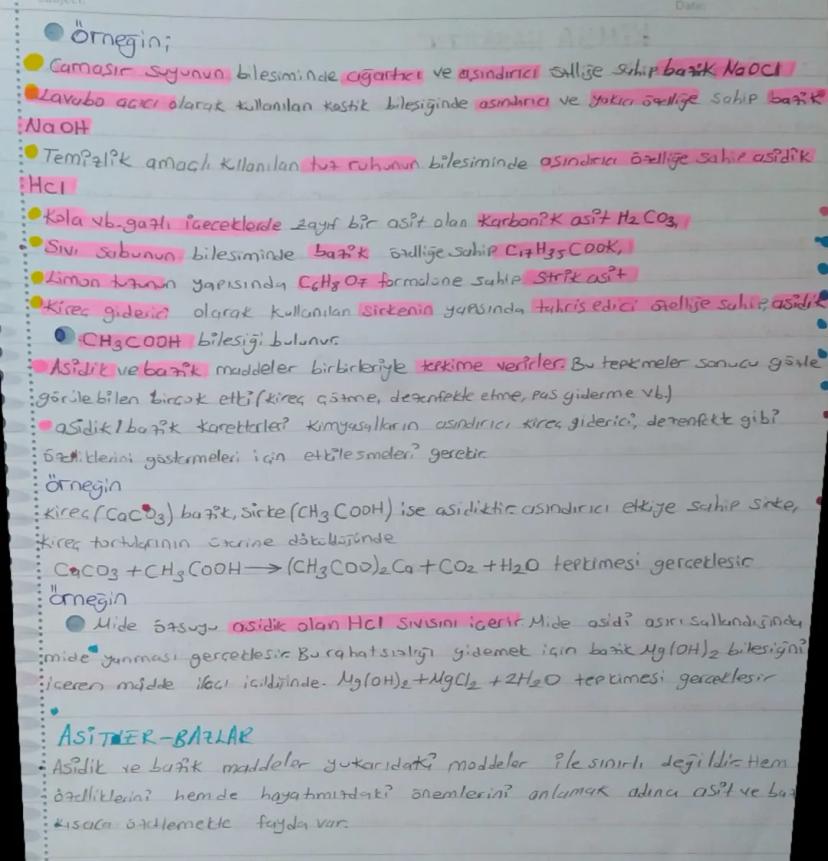 Örneğin;
Camasır suyunun bilesiminde ağartıcı ve asındırıcı özelliğe sahip bazik NaOCl
Lavabo acıcı olarak kullanılan kostik bilesiğinde asındırıcı ve yakıcı özelliğe sahip bazik
NaOH
Temizlik amaclı kllanılan tuz ruhunun bilesiminde asındırıcı özelliğe sahip asidik
HCl
Kola vb. gazlı iceceklerde zayıf bir asit olan karbonik asit H2CO3,
Sıvı sabunun bilesiminde bazik özelliğe sahip C17H35COOK,
Limon tuzunun yapısında C6H8O7 formülüne sahip Strik asit
Kirec giderici olarak kullanılan sirkenin yapısında tahris edici özelliğe sahip asidik
CH3COOH bilesiği bulunur.
Asidik ve bazik maddeler birbirleriyle tepkime verirler. Bu tepkmeler sonucu gözle
görüle bilen bircok etki (kirec çözme, dezenfekte etme, pas giderme vb.)
asidik/bazik karekterleri kimyasalların asındırıcı, kirec giderici, dezenfekte gibi
özelliklerini göstermeleri icin etkilesmeleri gerekir
örneğin
kirec (CaCO3) bazik, sirke (CH3COOH) ise asidiktir. asındırıcı etkiye sahip sirke,
kirec tortularının üzerine döküldüğünde
CaCO3 + CH3COOH → (CH3COO)2Ca + CO2 + H2O tepkimesi gerceklesir
örneğin
Mide özsuyu asidik olan HCl sıvısını icerir. Mide asidi asırı salgılandığında
mide yanması gerceklesir. Bu rahatsızlığı gidemek için bazik Mg(OH)2 bilesiğini
iceren mide ilacı icildiğinde. Mg(OH)2 + MgCl2 + 2H2O tepkimesi gerceklesir
ASİTLER-BAZLAR
Asidik ve bazik maddeler yukarıdaki maddeler ile sınırlı değildir. Hem
özelliklerini hemde hayatmızdaki önemlerini anlamak adına asit ve ba
kısaca özetlemekte fayda var.